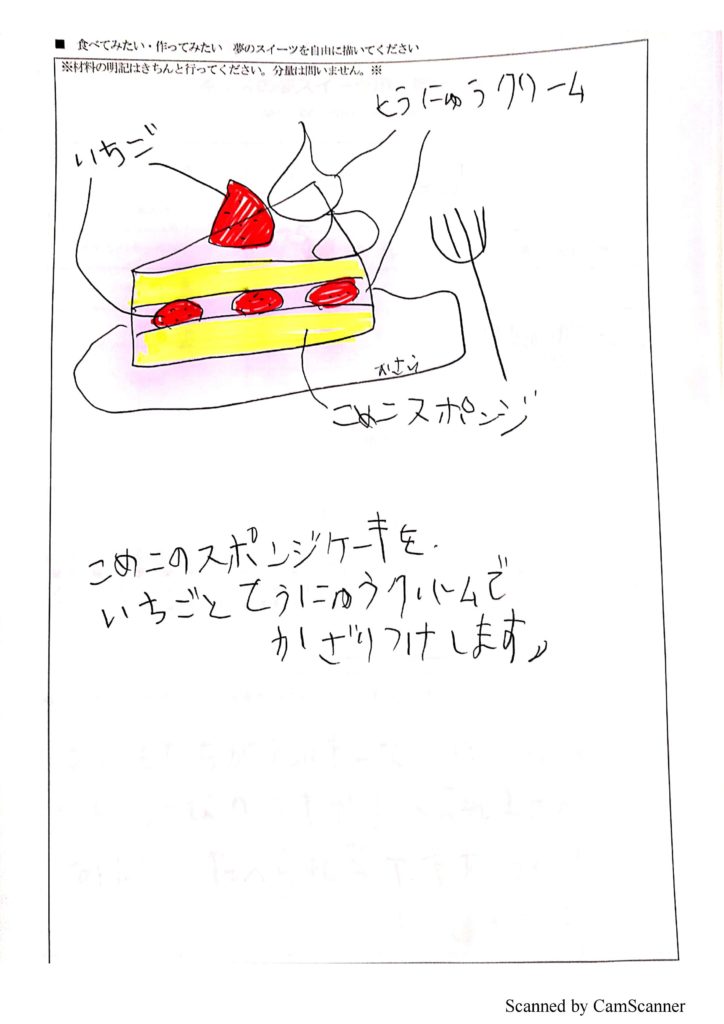 ■ 食べてみたい・作ってみたい 夢のスイーツを自由に描いてください
※材料の明記はきちんと行ってください。分量は問いません。※
とうにゅうクリーム
いちご
おさら
こめこスポンジ
こめこのスポンジケーキを、
いちごととうにゅうクリームで
かざりつけします。
Scanned by CamScanner